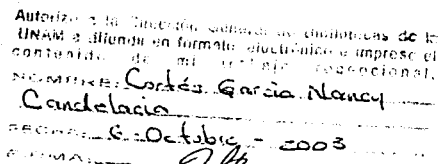 Autorizo a la Dirección General de Bibliotecas de la
UNAM a difundir en formato electrónico e impreso el
contenido de mi trabajo recepcional.
NOMBRE: Cortés Garcia Nancy
Candelaria
FECHA: 6 - Octubre - 2003
FIRMA: